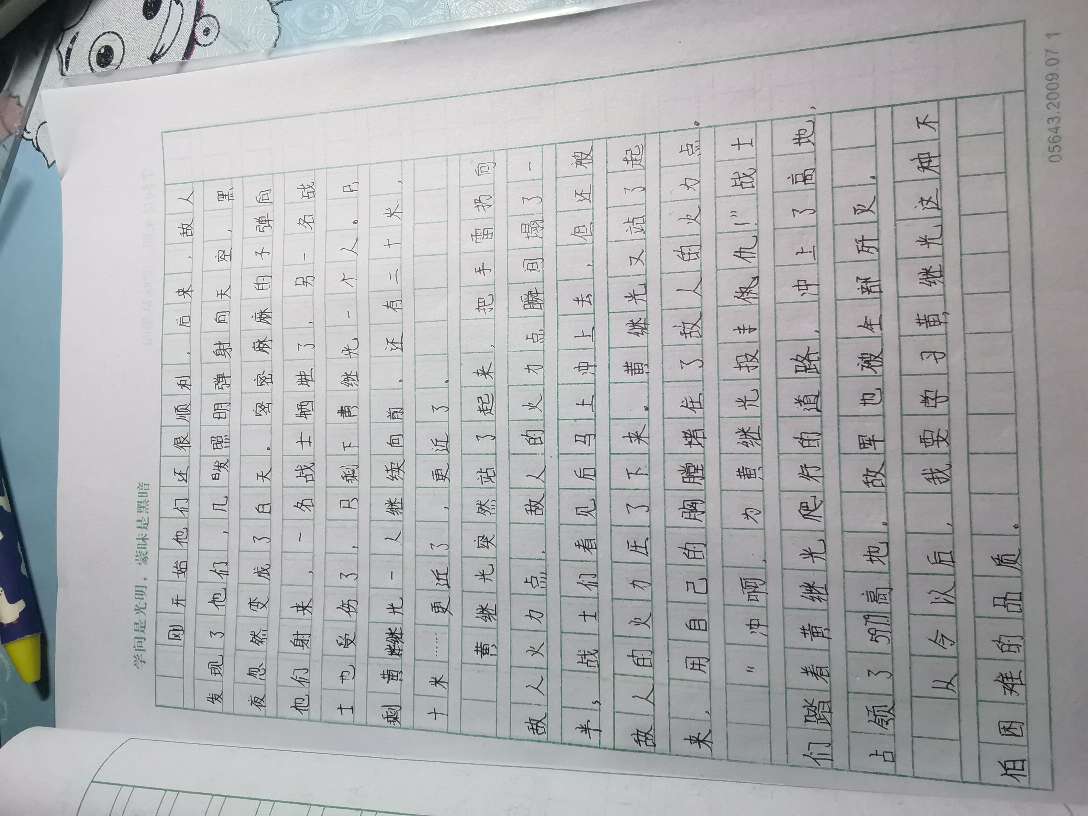 学问是光明，蒙昧是黑暗
刚开始他们还很顺利，后来，敌人
发现了他们，几发照明弹射向天空，黑
夜忽然变成了白天。密密麻麻的子弹向
他们射来，一名战士牺牲了，另一名战
士也受伤了，只剩下黄继光一个人。只
剩黄继光一人继续向前，还有二十米，
十米……更近了，更近了。
黄继光突然站了起来，把手雷扔向
敌人火力点，敌人的火力点瞬间塌了一
半，战士们看见后马上冲上去，但还被
敌人的火力压了下来。黄继光又站了起
来，用自己的胸膛堵住了敌人的火力点。
"冲啊，为黄继光报仇！"战士
们踏着黄继光爬行的道路，冲上了高地，
占领了597.9高地，敌军也被全部歼灭。
从今以后，我要学习黄继光这种不
怕困难的品质。
05643.2009.07 1